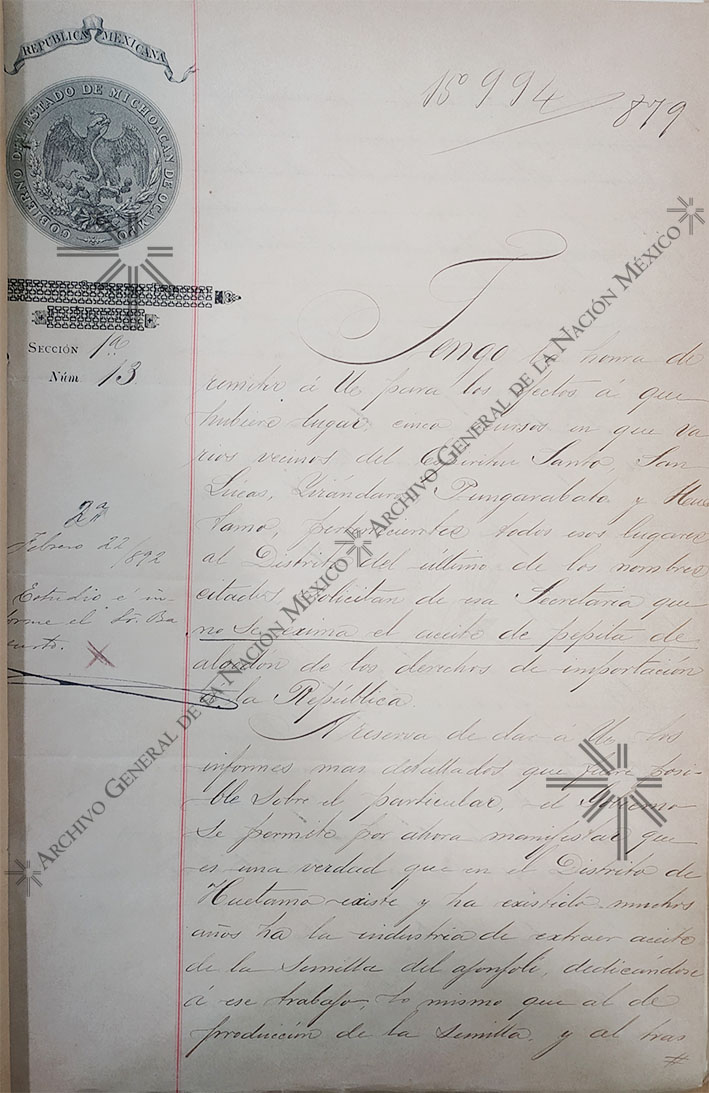 REPUBLICA MEXICANA
GOBIERNO DEL ESTADO DE MICHOACAN DE OCAMPO
15º 994
879
SECCIÓN 1a
Núm. 13
2a
Febrero 22/892
Estudio é in-
forme el Sr. Ba
Tengo la honra de
remitir á Ud. para los efectos á que
hubiere lugar, cinco cursos en que va
rios vecinos del Espiritu Santo, San
Lúcas, Zirándaro, Pungarabato y Hue
tamo, pertenecientes todos esos lugares
al Distrito del último de los nombres
citados, solicitan de esa Secretaria que
no se exima el aceite de pepita de
algodon de los derechos de importación
á la República.
A reserva de dar á Ud. los
informes mas detallados que fuere posi-
ble sobre el particular, el Gobierno
se permite por ahora manifestar que
es una verdad que en el Distrito de
Huetamo existe y ha existido muchos
años ha la industria de extraer aceite
de la semilla del ajonjolí, dedicándose
á ese trabajo, lo mismo que al de
producción de la semilla, y al tras
#
ARCHIVO GENERAL DE LA NACIÓN MÉXICO
ARCHIVO GENERAL DE LA NACIÓN MÉXICO